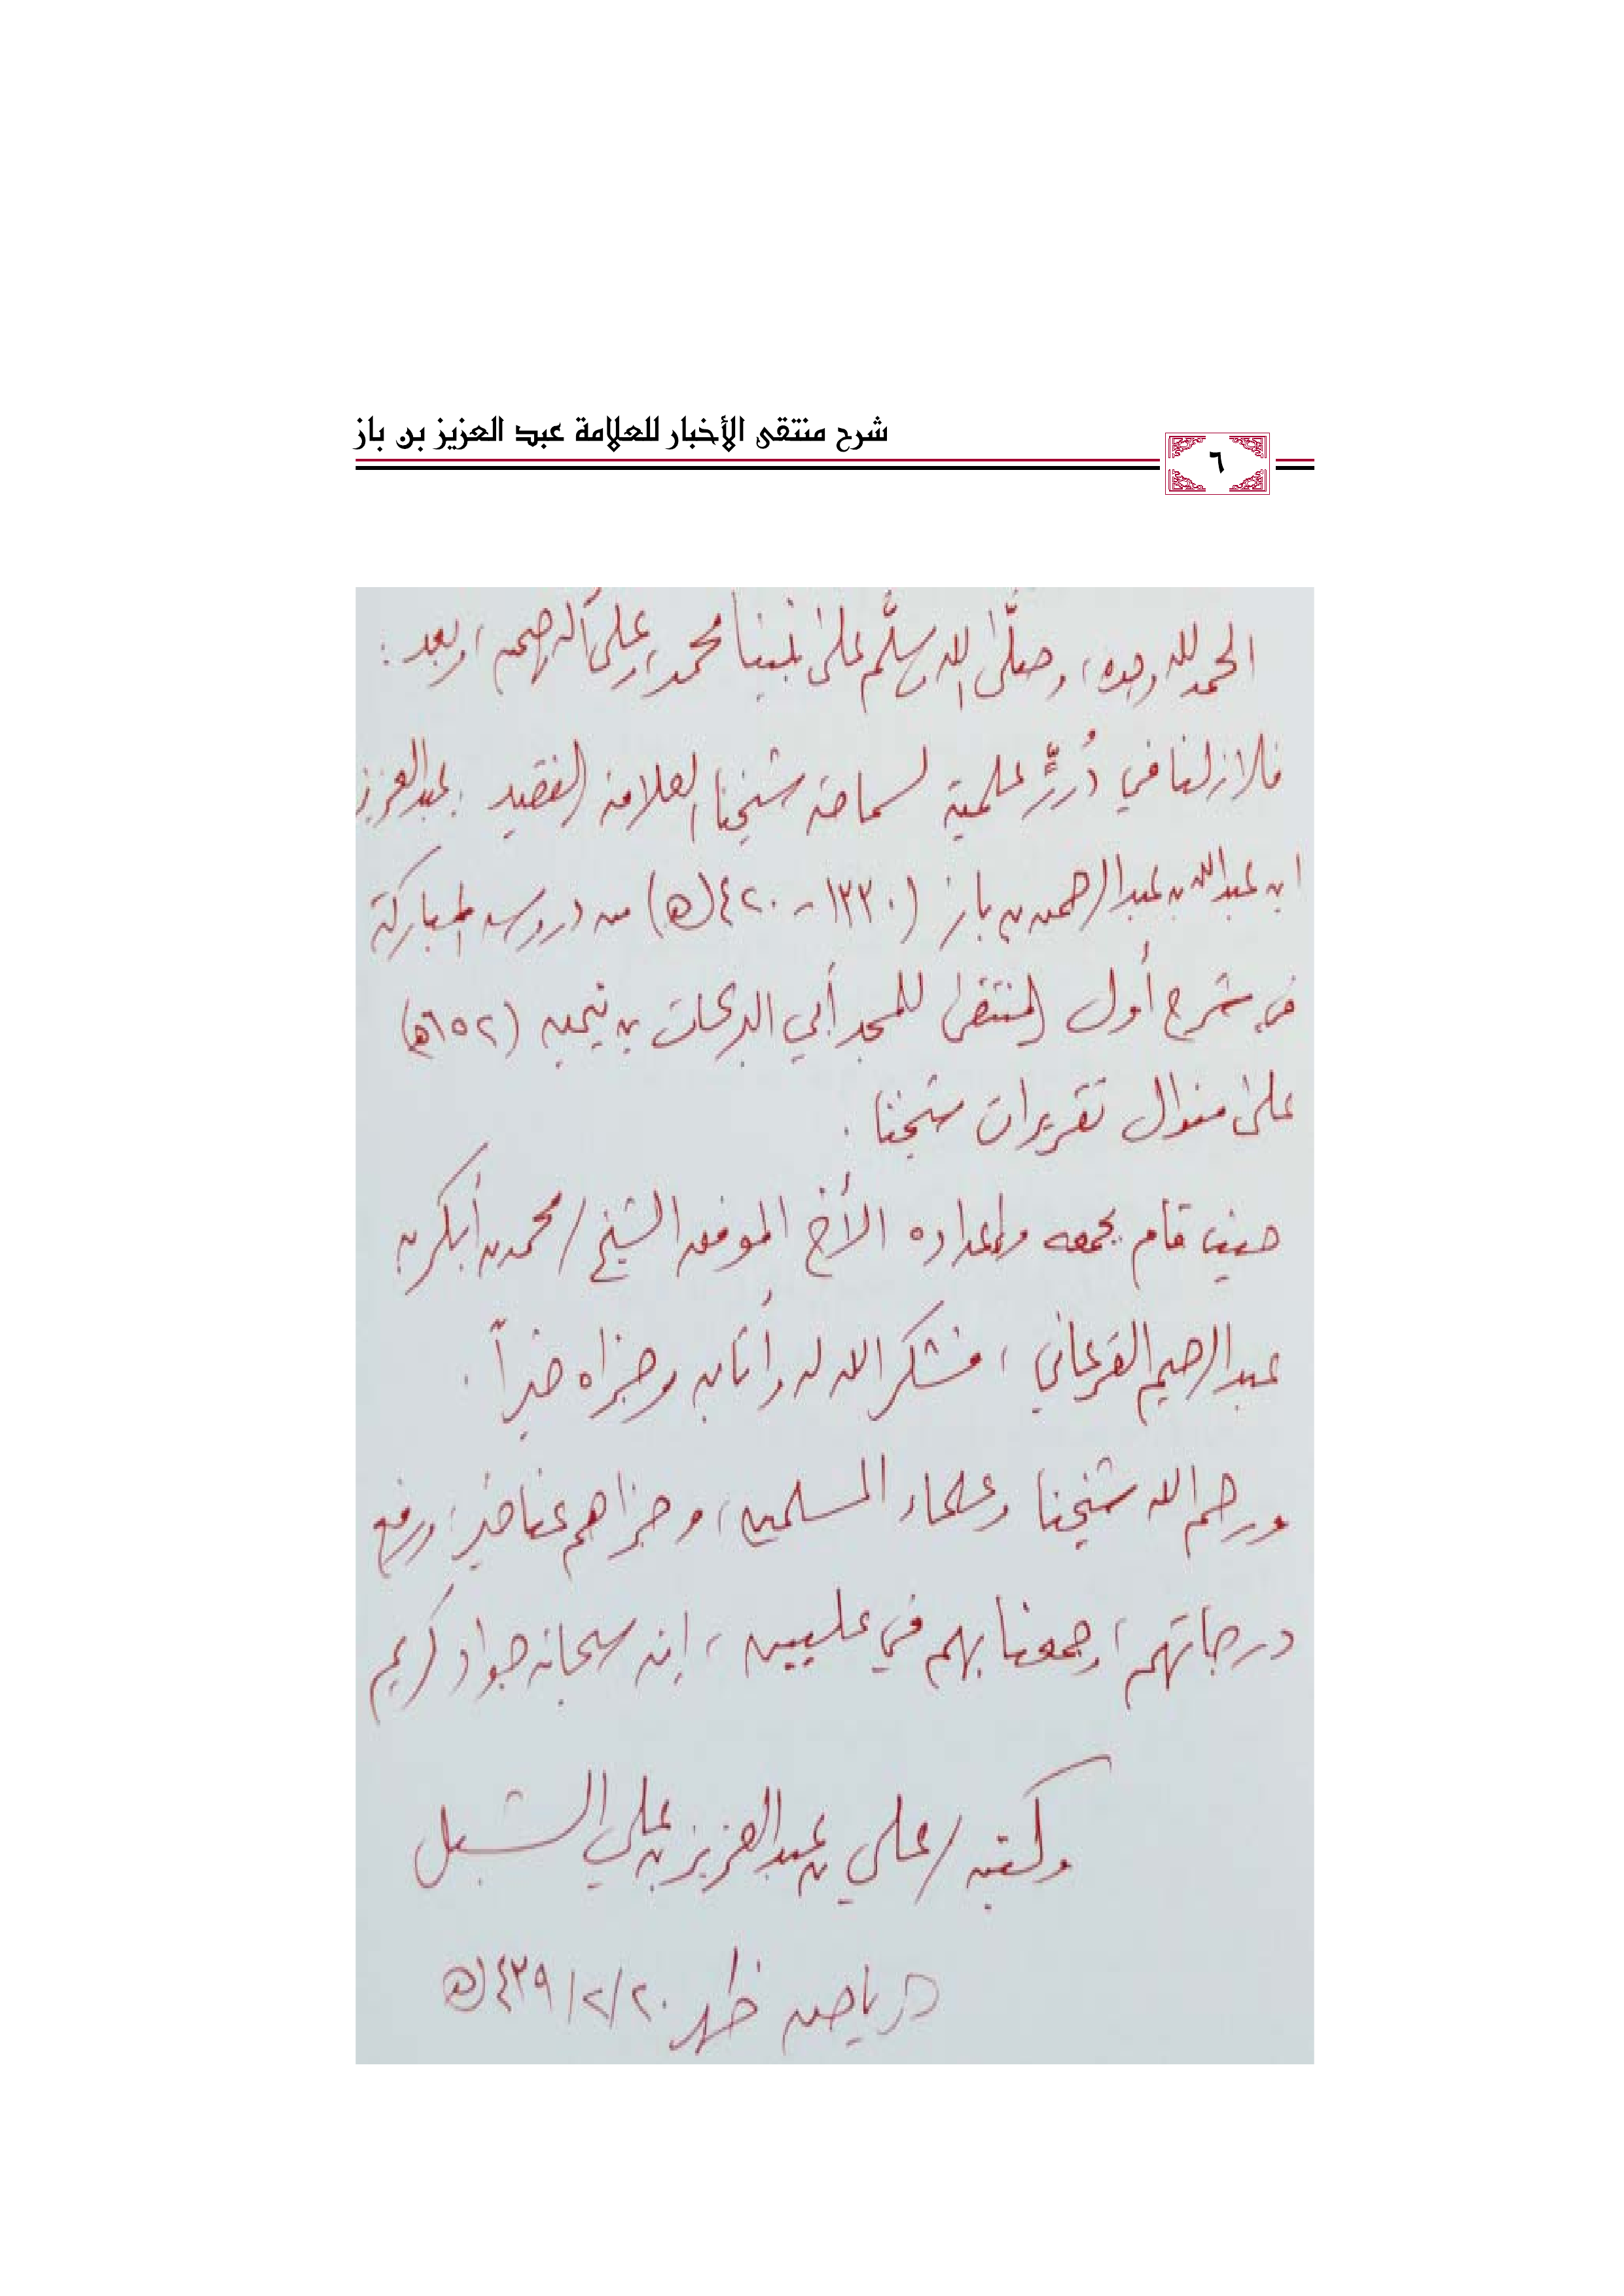 شرح منتقى الأخبار للعلامة عبد العزيز بن باز
٦
الحمد لله وحده، وصلَّى الله وسلَّم على نبينا محمد، وعلى آله وصحبه، وبعد:
فلازلنا في دُررٍ علمية لسماحة شيخنا العلامة الفقيد: عبدالعزيز
ابن عبدالله بن عبدالرحمن بن باز (١٣٣٠ - ١٤٢٠هـ) من دروسه المباركة
في شرح أول المنتقى للمجد أبي البركات بن تيمية (٦٥٢هـ)
على منوال تقريرات شيخنا.
حيث قام بجمعه وإعداده الأخ الموفق الشيخ / محمد بن أبكر بن
عبدالرحيم القرعاني، فشكر الله له وأثابه وجزاه خيراً.
ورحم الله شيخنا وعلماء المسلمين، وجزاهم عنا خير، ورفع
درجاتهم، وجمعنا بهم في عليين، إنه سبحانه جواد كريم
وكتبه / علي بن عبدالعزيز بن علي الشبل
٢٠/٢/١٤٣٩هـ